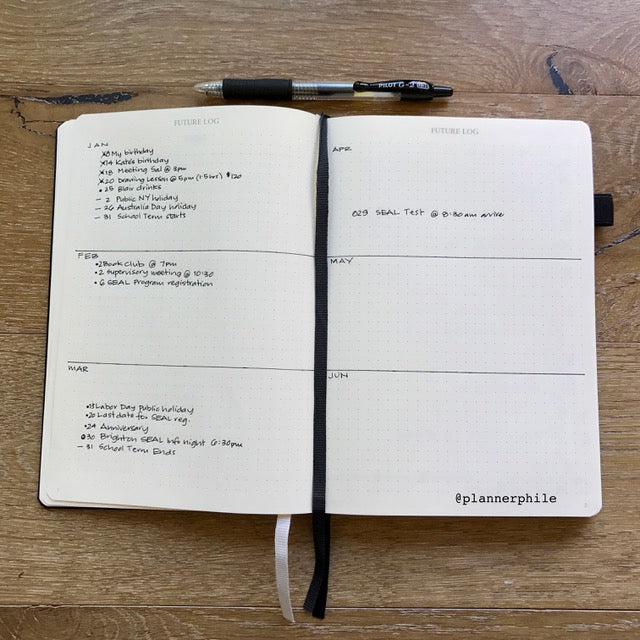 PILOT G-2
FUTURE LOG
JAN
x8 My birthday
x14 Kate's birthday
x18 Meeting Sal @ 3pm
x20 Drawing Lesson @ 5pm (1.5hrs) $120
• 25 Blair drinks
– 2 Public NY holiday
– 26 Australia Day holiday
– 31 School Term starts
FEB
•2 Book Club @ 7pm
•2 Supervisory meeting @ 10:30
• 6 SEAL Program registration
MAR
•13 Labor Day public holiday
•20 Last date for SEAL reg.
•24 Anniversary
030 Brighton SEAL Info night 6:30pm
– 31 School Term Ends
FUTURE LOG
APR
029 SEAL Test @ 8:30am arrive
MAY
JUN
@plannerphile